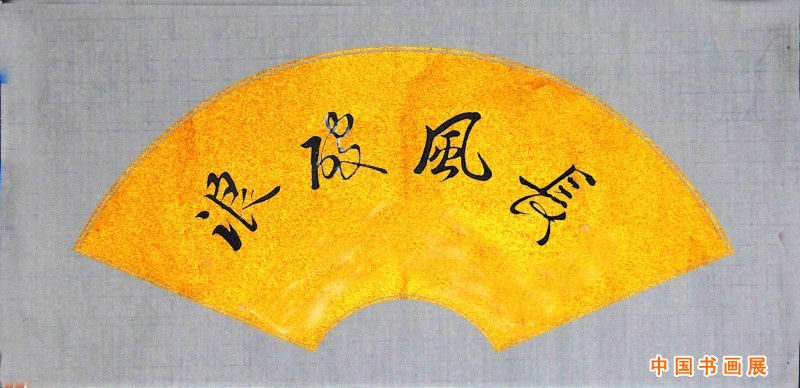 長風破浪
中国书画展